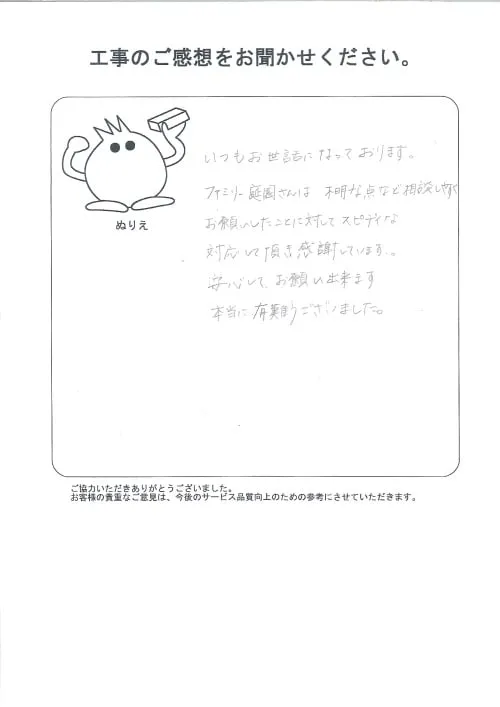 工事のご感想をお聞かせください。
ぬりえ
いつもお世話になっております。
ファミリー庭園さんは 不明な点など相談しやすく
お願いしたことに対してスピディな
対応して頂き感謝しています。
安心して、お願い出来ます
本当に有難うございました。
ご協力いただきありがとうございました。
お客様の貴重なご意見は、今後のサービス品質向上のための参考にさせていただきます。